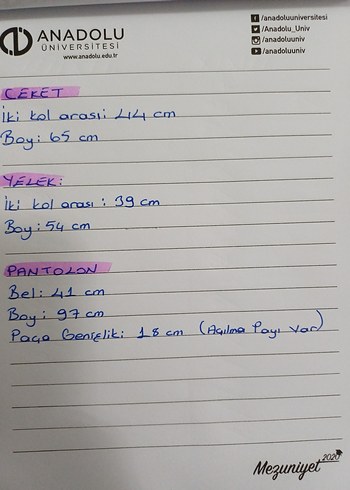 ANADOLU
ÜNİVERSİTESİ
www.anadolu.edu.tr
/anadoluuniversitesi
/Anadolu_Univ
/anadoluuniv
/anadoluuniv
CEKET
İki kol arası: 44 cm
Boy: 65 cm
YELEK:
İki kol arası: 39 cm
Boy: 54 cm
PANTOLON
Bel: 41 cm
Boy: 97 cm
Paça Genişlik: 18 cm (Açılma Payı Var)
Mezuniyet 2020